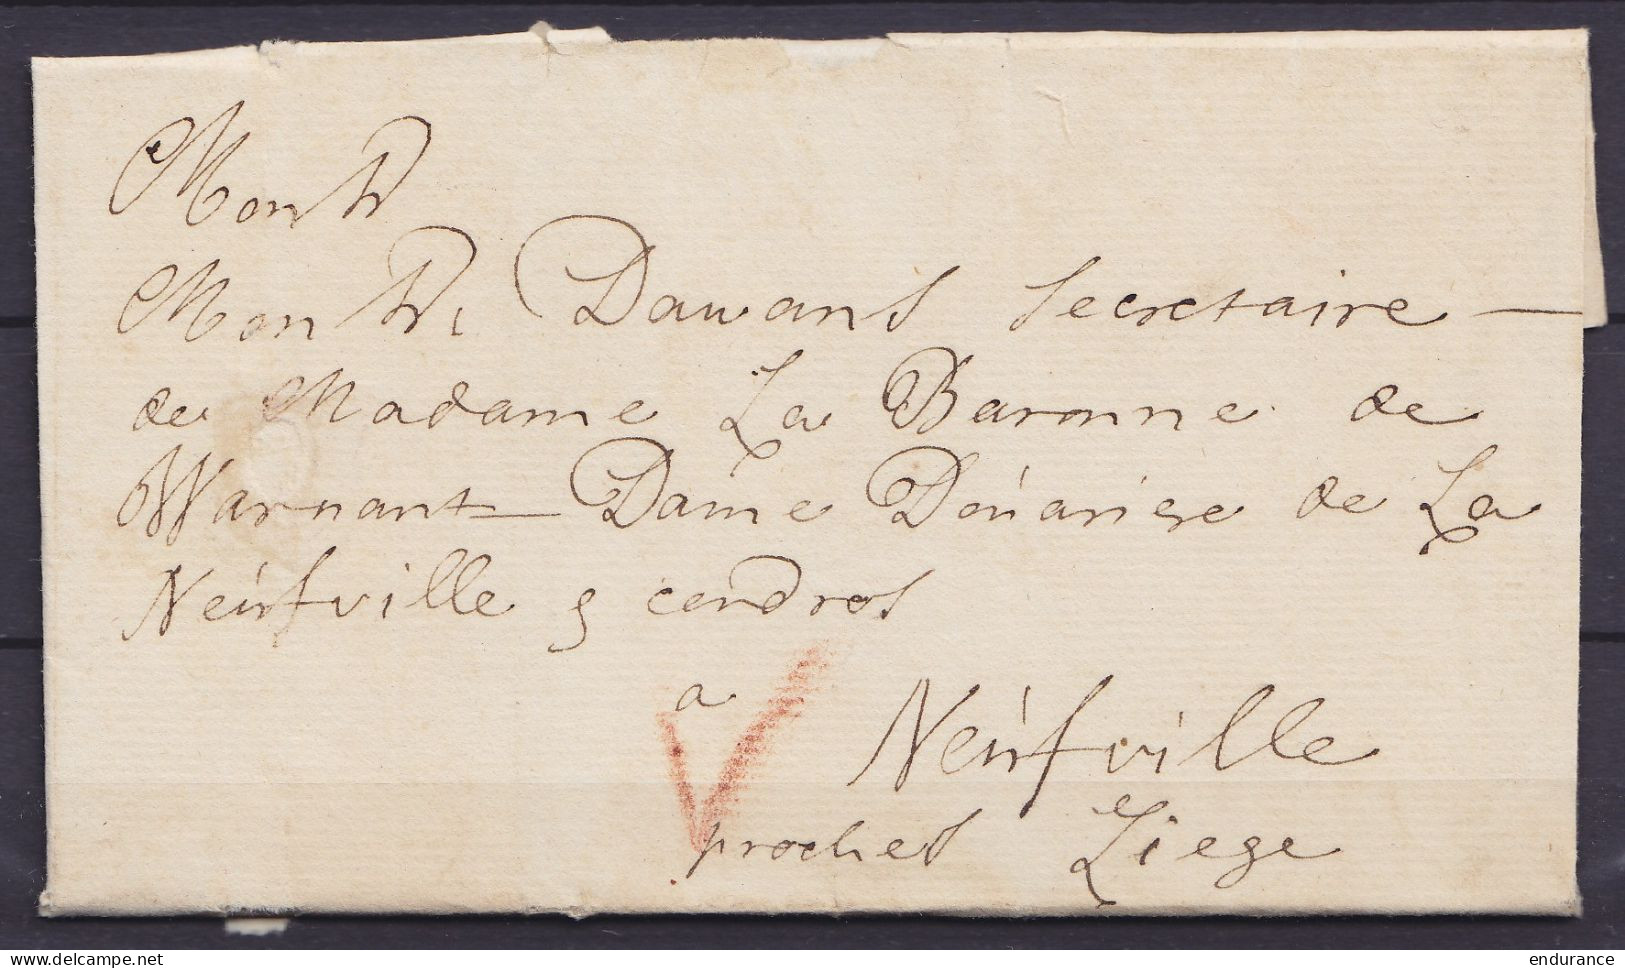 Monsr
Monsr. Dawans Secretaire
de Madame La Baronne de
Warnant Dame Doúariere de La
Neúfville condros
a
V
Neúfville
proches Liege
delcampe.net
endurance